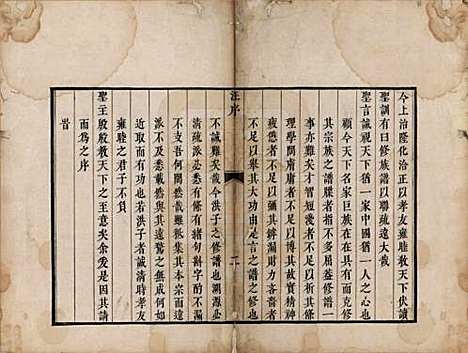 今上治隆化洽正以孝友雍睦教天下伏讀
聖訓有曰修族譜以聯疏遠大哉
聖言誠視天下猶一家中國猶一人之心也
顧今天下名家巨族在在具有而克修
其宗族之譜牒者指不多屈蓋修譜
事亦難矣才智短淺者不足以析其條
理學問膚庸者不足以博其蒐精力
疲憊者不足以彌其罅漏財力吝嗇者
不足以舉其大功由是言之譜之修也
汪序
二
不誠難矣哉今洪子之修譜也溯源必
清疏派必悉有緒句斟字酌不漏不遺
不支吾何開然哉雖然集其本宗而遠
派不與焉其遠騖之無成何如
近取而有功者若洪子者誠清時孝友
雍睦之君子不負
聖主殷殷教天下之意矣余爰是因其請
而為之序
旹